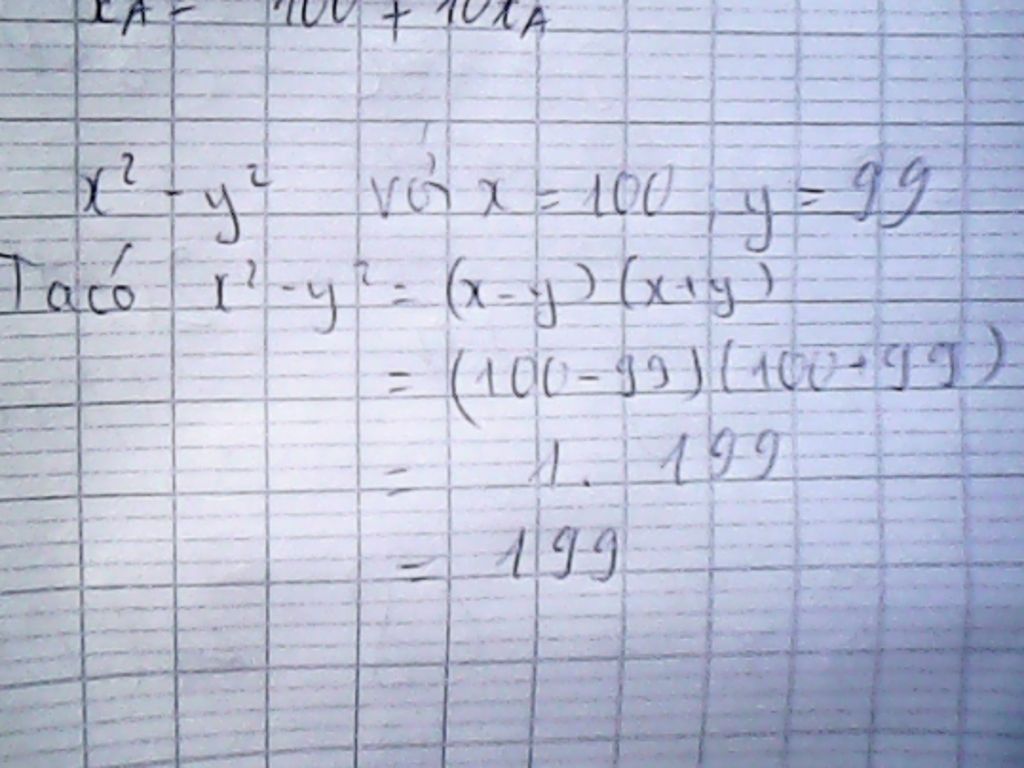 x_A = 100 + 10x_A
x² - y² với x = 100, y = 99
Ta có x² - y² = (x - y)(x + y)
= (100 - 99)(100 + 99)
= 1. 199
= 199